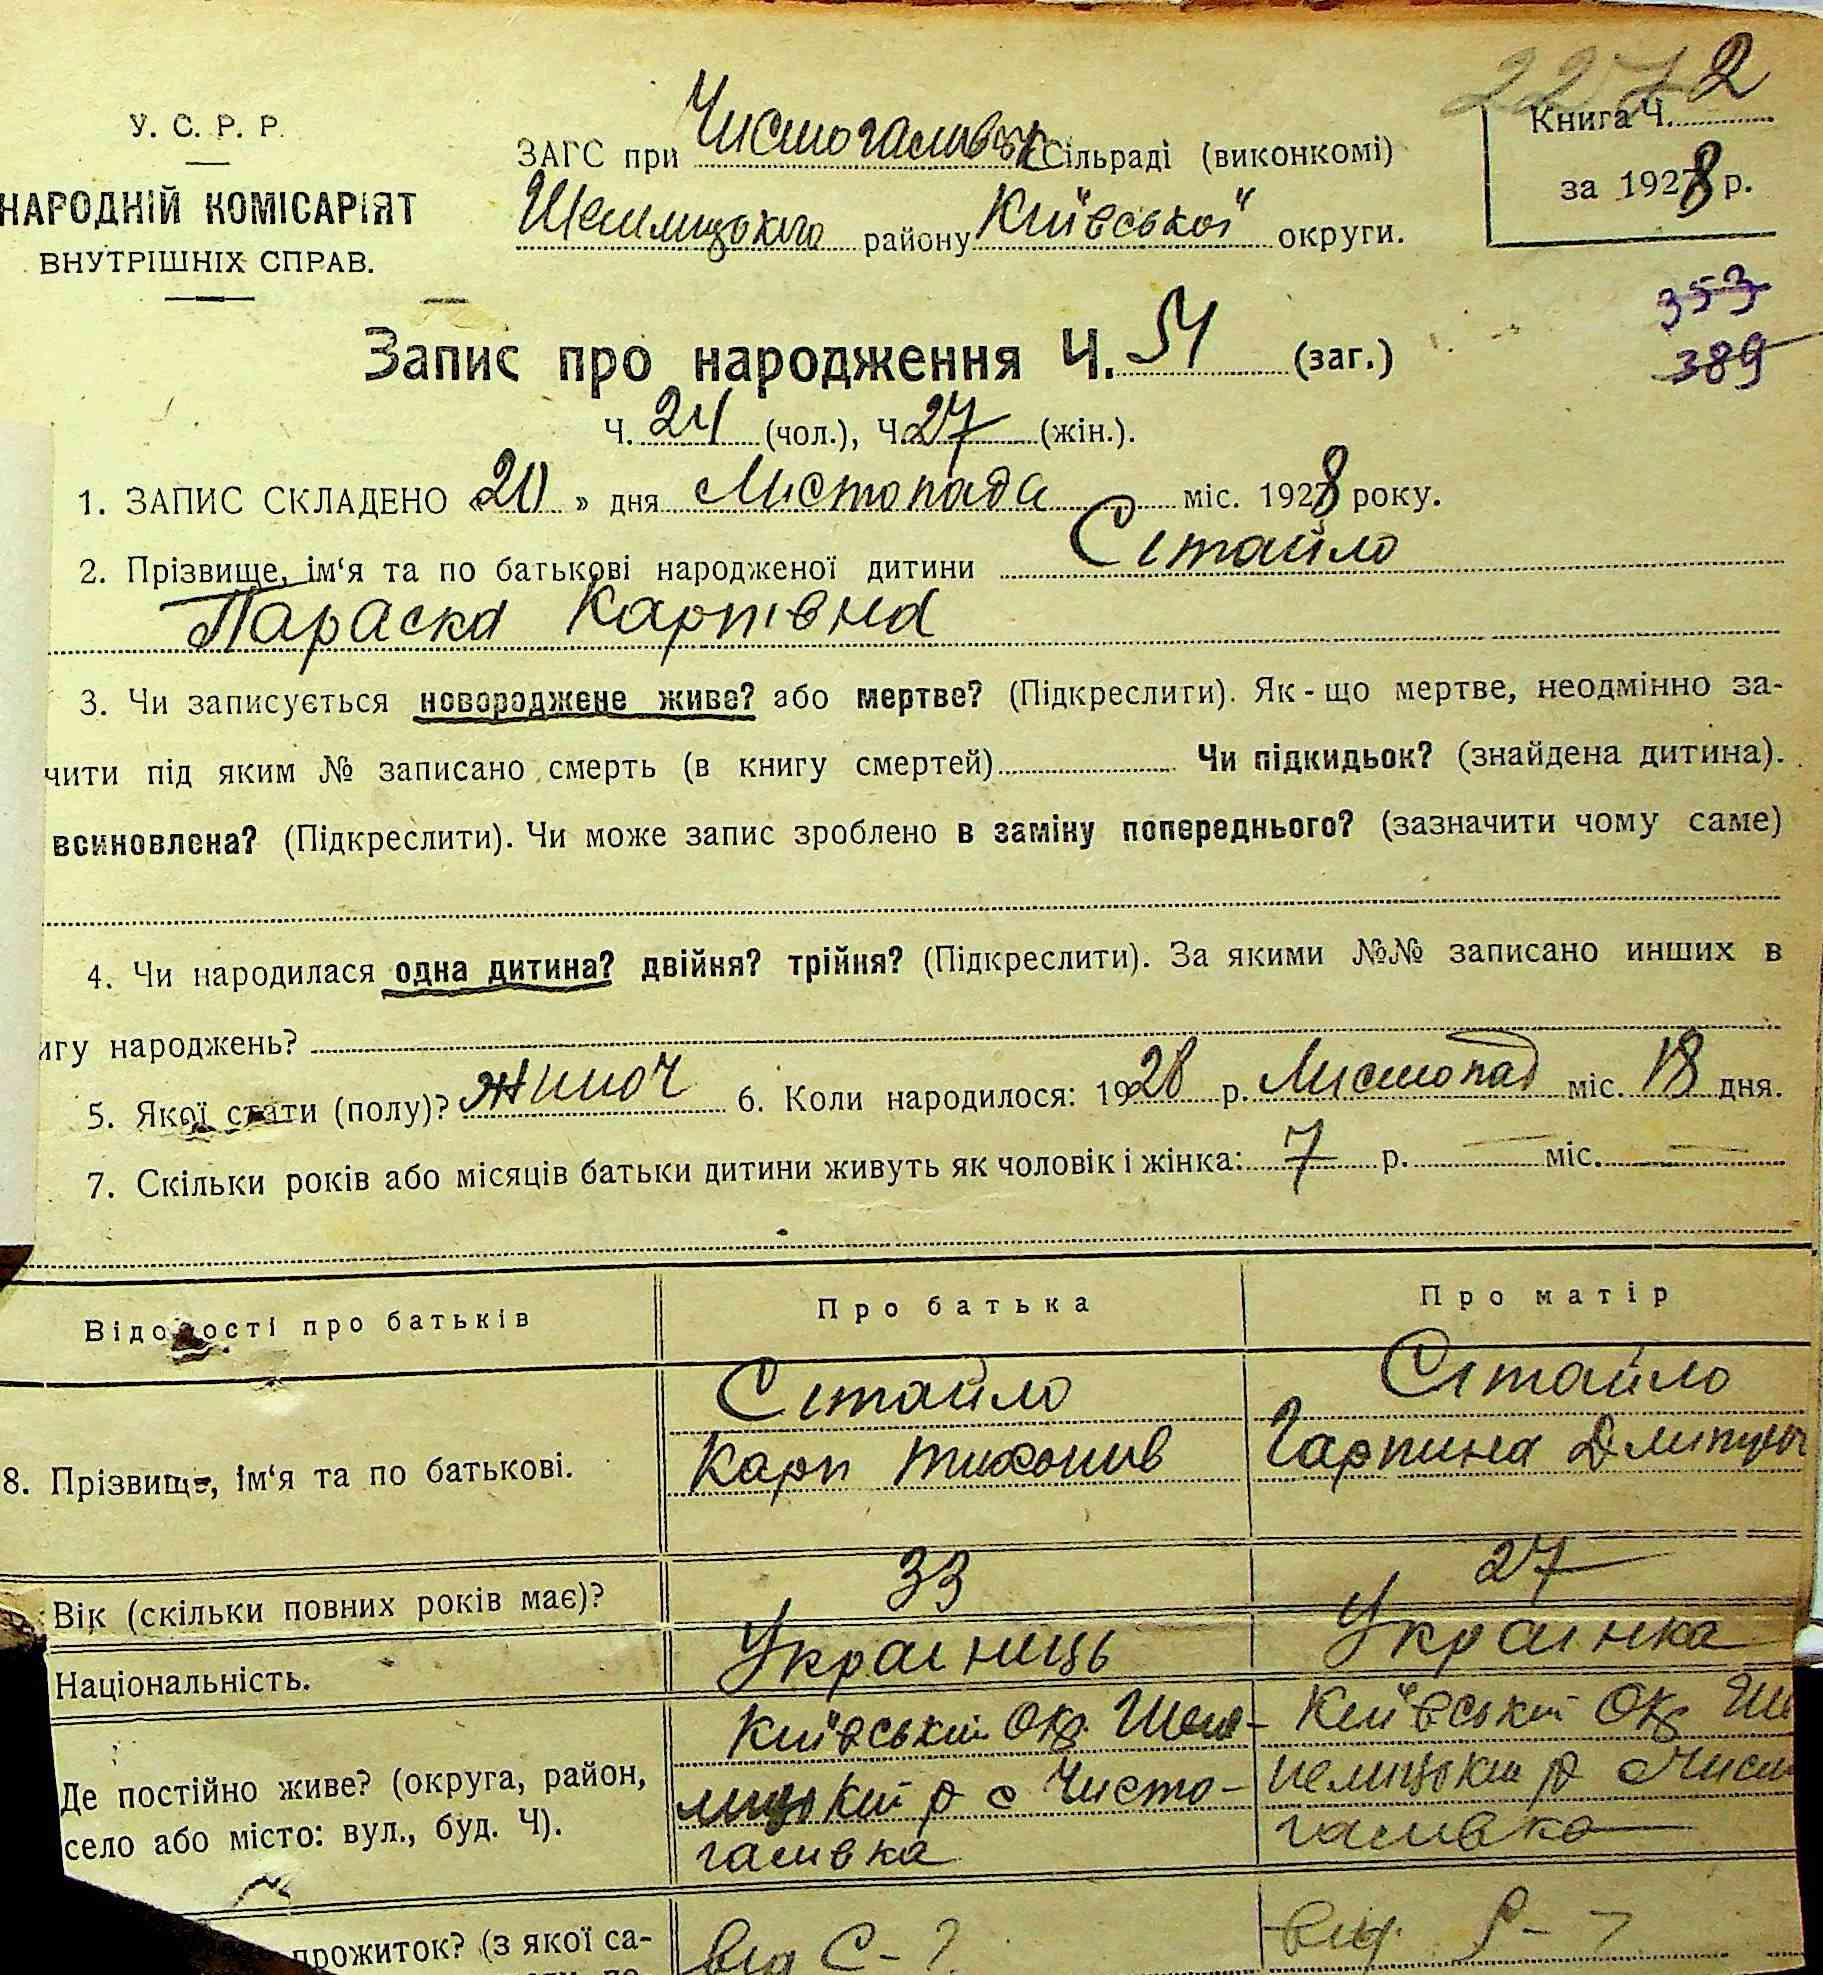 У. С. Р. Р.
НАРОДНІЙ КОМІСАРІЯТ
ВНУТРІШНІХ СПРАВ.
ЗАГС при Чистогалівськ Сільраді (виконкомі)
району "Київської" округи.
2272
Книга Ч.
за 1928 р.
353
389
Запис про народження Ч. 51 (заг.)
Ч. 24 (чол.), Ч. 27 (жін.).
1. ЗАПИС СКЛАДЕНО «20» дня Листопада міс. 1928 року.
2. Прізвище, ім‘я та по батькові народженої дитини Сітайло
Параска Карпівна
3. Чи записується новороджене живе? або мертве? (Підкреслити). Як-що мертве, неодмінно за-
чити під яким № записано смерть (в книгу смертей) Чи підкидьок? (знайдена дитина).
всиновлена? (Підкреслити). Чи може запис зроблено в заміну попереднього? (зазначити чому саме)
4. Чи народилася одна дитина? двійня? трійня? (Підкреслити). За якими №№ записано инших в
игу народжень?
5. Якої стати (полу)? жиноч 6. Коли народилося: 1928 р. Листопад міс. 18 дня.
7. Скільки років або місяців батьки дитини живуть як чоловік і жінка: 7 р. — міс. —
Відомості про батьків Про батька Про матір
Сітайло Сітайло
8. Прізвище, ім‘я та по батькові. Карп Тихонив Гарпина
Вік (скільки повних років має)? 33 27
Національність. Украінець Украінка
Київський Окр. Шеле- Київський Окр Ше
Де постійно живе? (округа, район, лицький р с Чисто- пелицький р с Чист
село або місто: вул., буд. Ч). галивка галивка
прожиток? (з якої са- від С-?